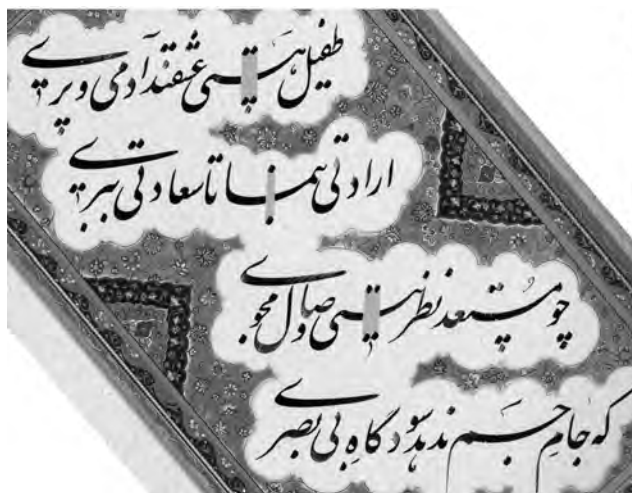 طفیل هستی عشقند آدمی و پری
ارادتی بنما تا سعادتی ببری
چو مستعد نظر نیستی وصال مجوی
که جامِ جم ندهد سود گاهِ بی بصری